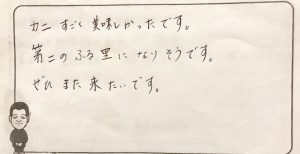 カニ すごく 美味しかったです。
第二の ふる里 に なり そうです。
ぜひ また 来 たいです。